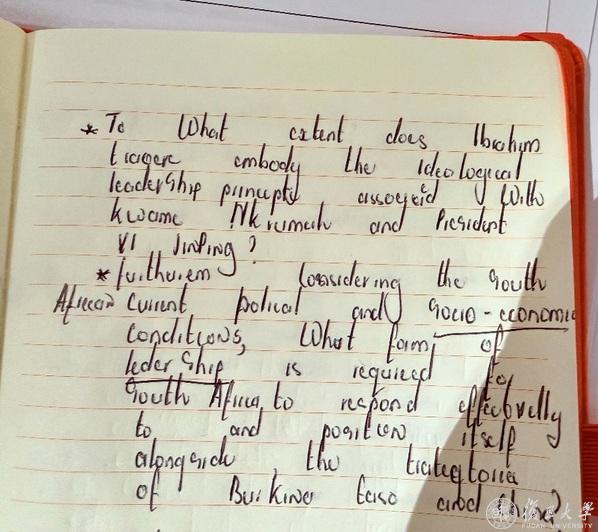 * To What extent does Ibrahim
traore embody the Ideological
leadership principls assoyeid With
kwame Nkrumah and President
XI JinPing?
* furtherem Considering the South
African current polical and socio-economic
conditions, What form of
leder ship is required to
South Africa, to respond effectively
to and position itself
alongside, the
of Burkina faso and China?
復旦大學
FUDAN UNIVERSITY